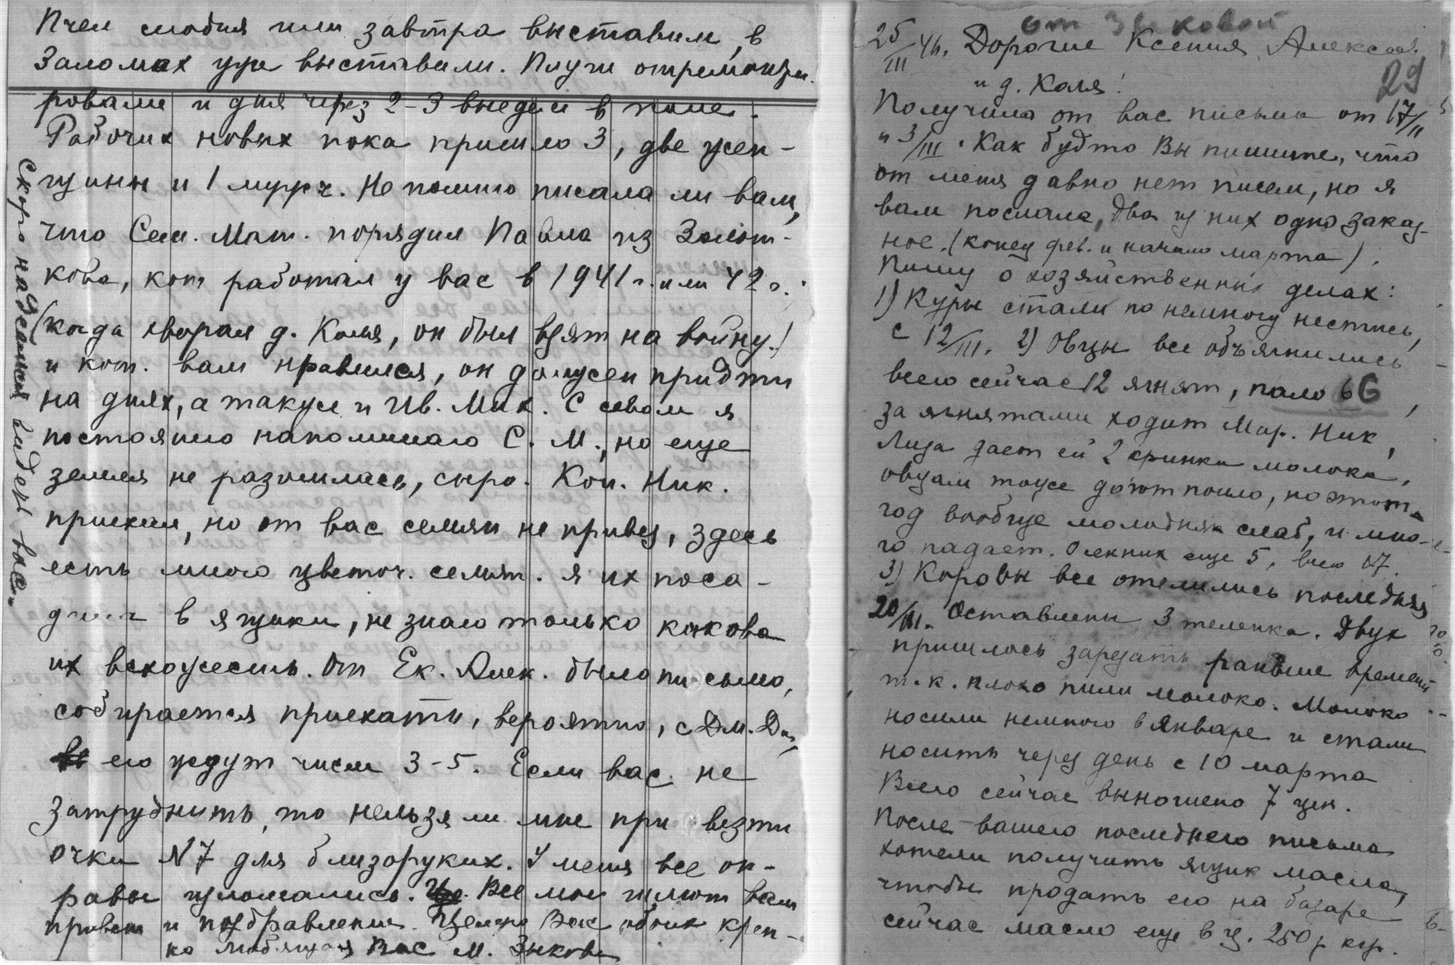 Пчел сегодня или завтра выставим, в
Заломах уже выставили. Плуги отремонти-
ровали и дня через 2-3 выедем в поле.
Рабочих новых пока пришло 3, две жен-
щины и 1 мужч. Не помню писала ли вам,
что Сем. Мат. порядил Павла из Золот-
кова, кот работал у вас в 1941 г. или 42 г.
(когда хворал д. Коля, он был взят на войну)
и кот. вам нравился, он должен придти
на днях, а также и Ив. Мих. С севом я
постоянно напоминаю С. М., но еще
земля не разошлась, сыро. Кон. Ник.
приехал, но от вас семян не привез, здесь
есть много цветоч. семян. я их поса-
дила в ящики, не знаю только какова
их всхожесть. От Ек. Алек. было письмо,
собирается приехать, вероятно, с Дм. Дм.,
его ждут числа 3-5. Если вас не
затруднить, то нельзя ли мне привезти
очки N 7 для близоруких. У меня все оп-
равы изломались. Все мои шлют вам
привет и поздравления. Целую Вас обоих креп-
ко любящая Вас М. Зыкова
Скоро надеемся видеть вас.
от Зыковой
25/III 46. Дорогие Ксения Алексеев.
29
и д. Коля!
Получила от вас письма от 17/II
и 3/III. Как будто Вы пишите, что
от меня давно нет писем, но я
вам послала, два из них одно заказ-
ное. (конец фев. и начало марта).
Пишу о хозяйственных делах:
1) Куры стали по немногу нестись,
с 12/III. 2) Овцы все объягнились
всего сейчас 12 ягнят, пало 6
за ягнятами ходит Мар. Ник,
Лиза дает ей 2 кринки молока,
овцам тоже дают пойло, но этот
год вообще молодняк слаб, и мно-
го падает. еще 5, всего 17.
3) Коровы все отелились последняя
20/III. Оставлены 3 теленка. Двух
пришлось зарезать раньше времени
т. к. плохо пили молоко. Молоко
носили немного в январе и стали
носить через день с 10 марта
Всего сейчас выношено 7 цен.
После вашего последнего письма
хотели получить ящик масла,
чтобы продать его на базаре
сейчас масло еще в ц. 250 р кгр.